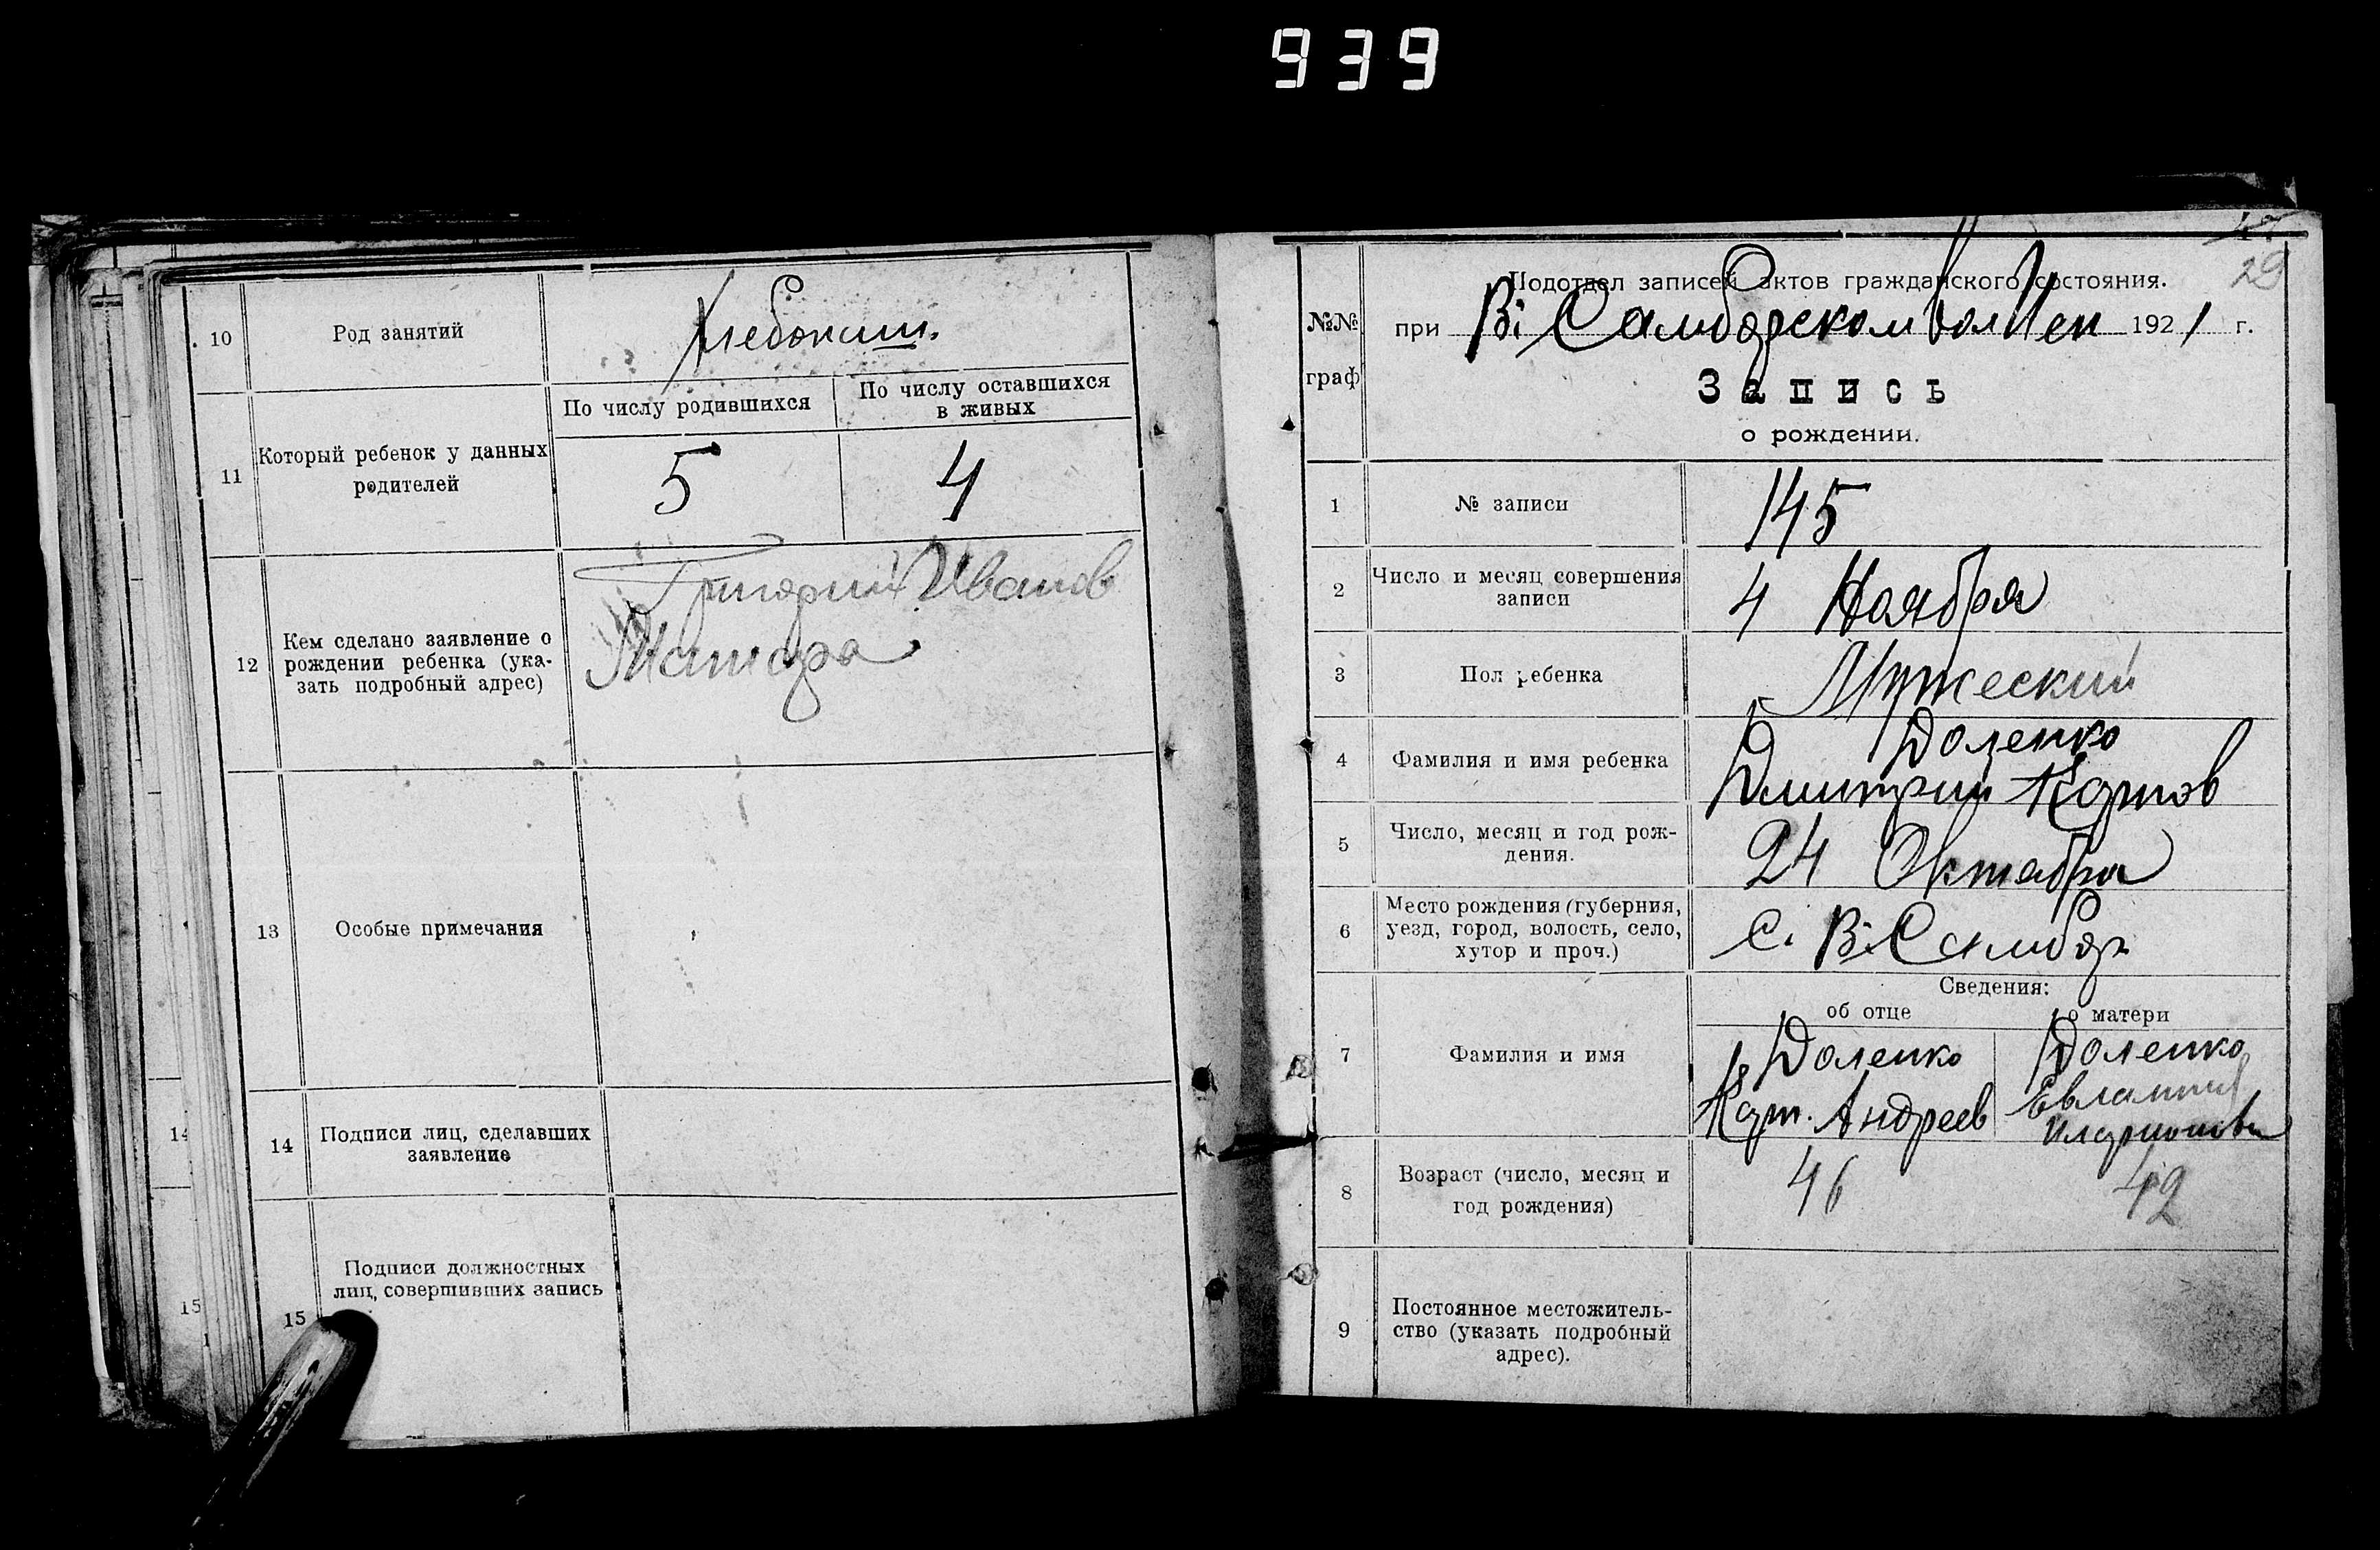 939
10
Род занятий
Хлебопаш.
11
Который ребенок у данных
родителей
По числу родившихся
По числу оставшихся
в живых
5
4
12
Кем сделано заявление о
рождении ребенка (ука-
зать подробный адрес)
Григорий Иванов
13
Особые примечания
14
Подписи лиц, сделавших
заявление
15
Подписи должностных
лиц, совершивших запись
14
15
29
№№
граф
Подотдел записей актов гражданского состояния.
при В. Самборском Вол Исп 1921 г.
Запись
о рождении.
1
№ записи
145
2
Число и месяц совершения
записи
4 Ноября
3
Пол ребенка
Мужеский
4
Фамилия и имя ребенка
Доленко
Дмитрий
5
Число, месяц и год рож-
дения.
24 Октября
6
Место рождения (губерния,
уезд, город, волость, село,
хутор и проч.)
С. В. Самбор
Сведения:
об отце
о матери
7
Фамилия и имя
Доленко
Андреев
Доленко
Евлампия
Иларионова
8
Возраст (число, месяц и
год рождения)
46
42
9
Постоянное местожитель-
ство (указать подробный
адрес).